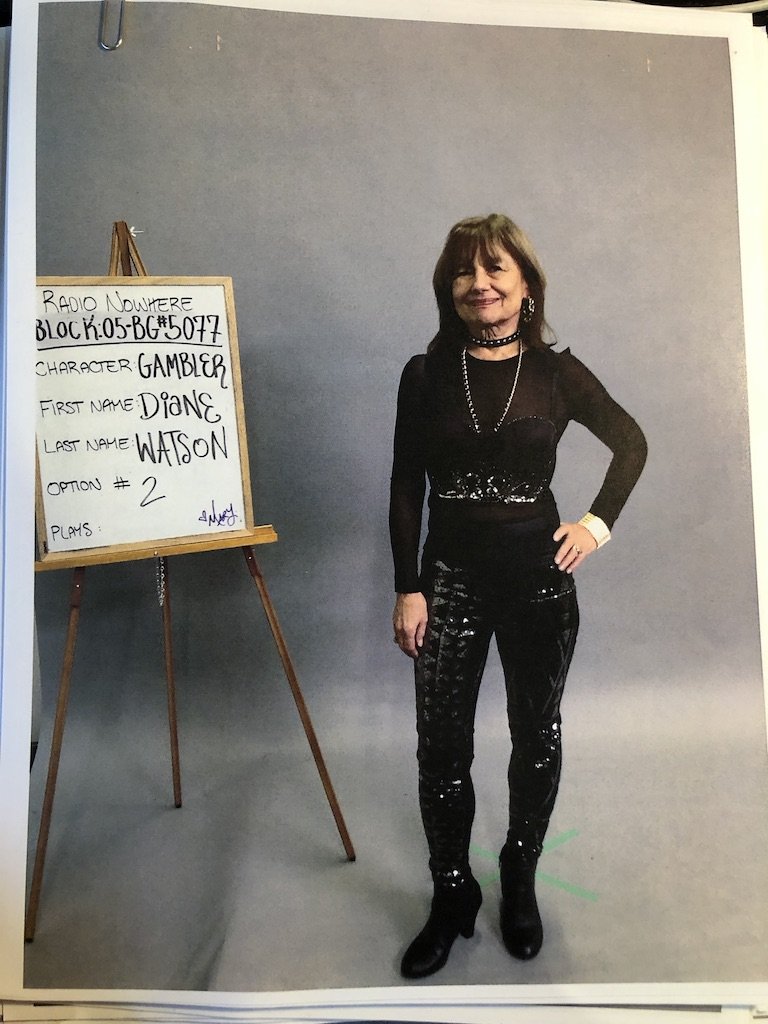 RADIO NOWHERE
BLOCK:05-BG#5077
CHARACTER: GAMBLER
FIRST NAME: DIANE
LAST NAME: WATSON
OPTION # 2
PLAYS: